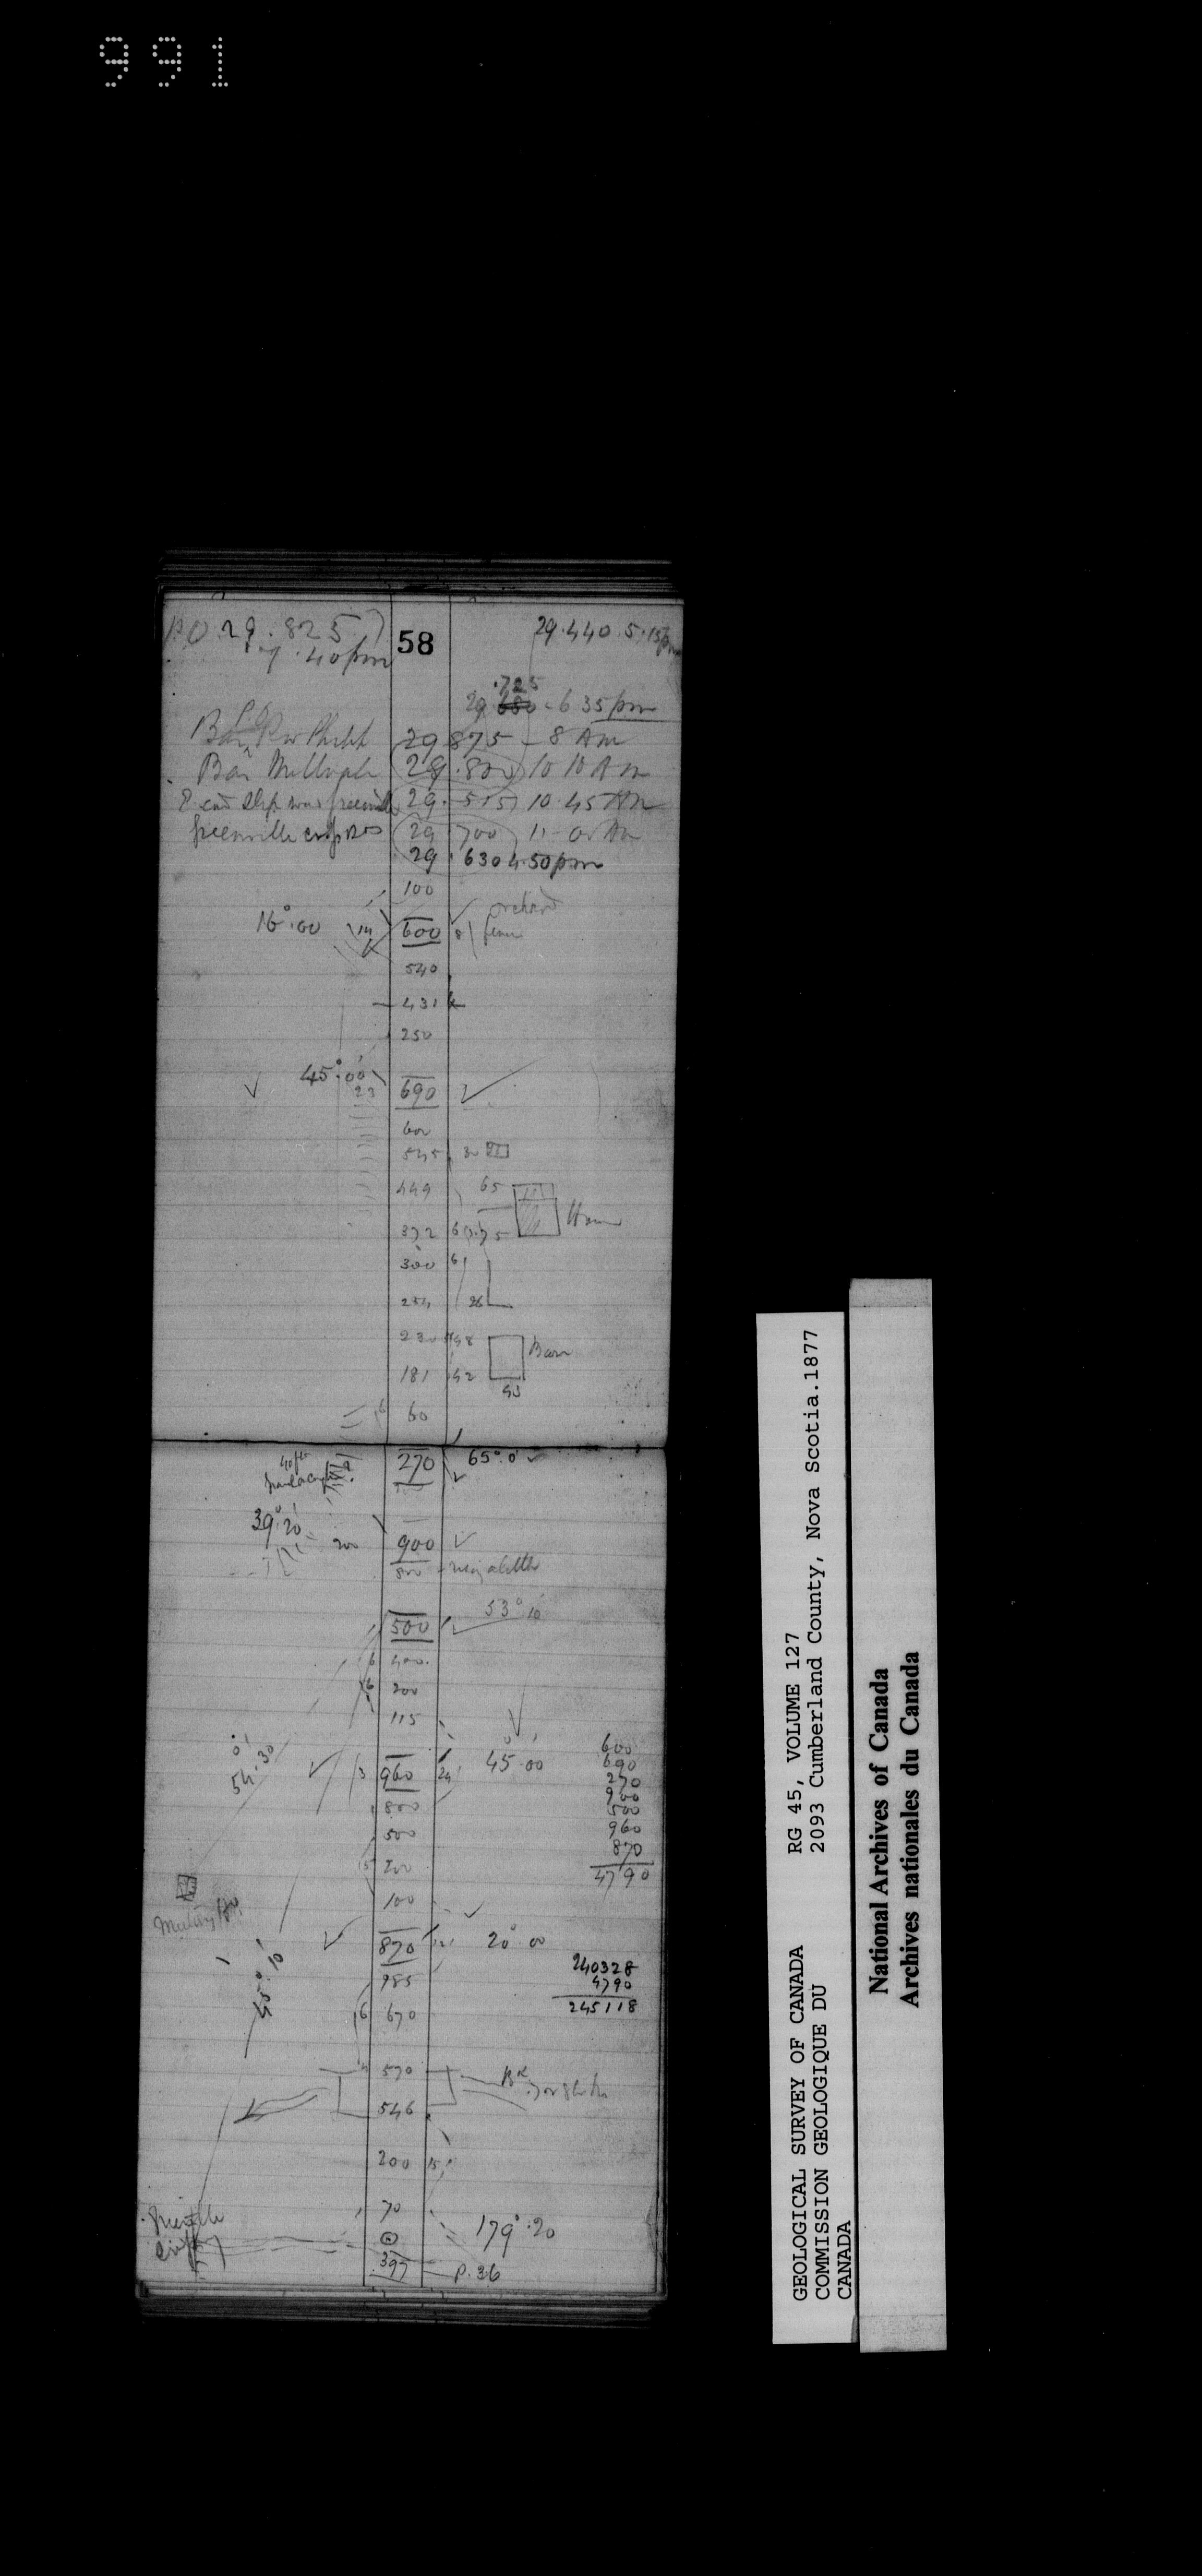 991
P.O. 29.825
7.40 pm
58
29.440 5.15 pm
.725
29 680 - 6 35 pm
P.O.
Bar 29 875 - 8 AM
Bar 29.800 10 10 AM
E end 29.515 10.45 AM
Greenville 29 700 11-00 AM
29.630 4.50 pm
100
orchard
16°.00 14 600 8 fence
540
431
250
45°.00'
23 690
600
545 30
449 65
House
372 6 75
300 6
254 26
230 48
Barn
181 42
43
6 60
270 65°.0'
40 ft
39°.20'
200 900
800
53° 10'
500
6 400
6 200
115
54°.30'
3 960 24 45°.00'
800
500
5 200
100
600
690
270
900
500
960
870
4790
870 12 20°.00
45°.10'
785
6 670
240328
4790
245118
570 Bk
546
200 15
70
179°.20
397 P.36
GEOLOGICAL SURVEY OF CANADA RG 45, VOLUME 127
COMMISSION GEOLOGIQUE DU 2093 Cumberland County, Nova Scotia.1877
CANADA
National Archives of Canada
Archives nationales du Canada